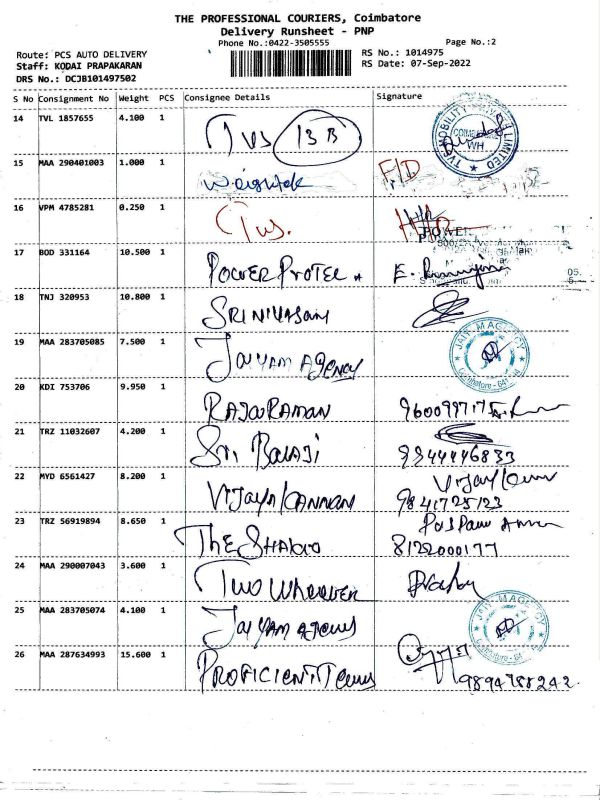 THE PROFESSIONAL COURIERS, Coimbatore
Delivery Runsheet - PNP
Phone No.:0422-3505555 Page No.:2
Route: PCS AUTO DELIVERY RS No.: 1014975
Staff: KODAI PRAPAKARAN RS Date: 07-Sep-2022
DRS No.: DCJB101497502
S No Consignment No Weight PCS Consignee Details Signature
14 TVL 1857655 4.100 1 TVS 13 B
15 MAA 290401003 1.000 1 F/D
16 VPM 4785281 0.250 1 Tvs.
17 BOD 331164 10.500 1 POWER PROTEC
18 TNJ 320953 10.800 1 SRINIVASAN
19 MAA 283705085 7.500 1 JAIYAM AGENCY
20 KDI 753706 9.950 1 RAJARAMAN
21 TRZ 11032607 4.200 1 Sri BALAJI 9344446833
22 MYD 6561427 8.200 1 VIJAYA KANNAN 9841725123
23 TRZ 56919894 8.650 1 THE 8122000177
24 MAA 290007043 3.600 1 TWO WHEELER
25 MAA 283705074 4.100 1 JAIYAM
26 MAA 287634993 15.600 1 PROFICIENT 9894788242